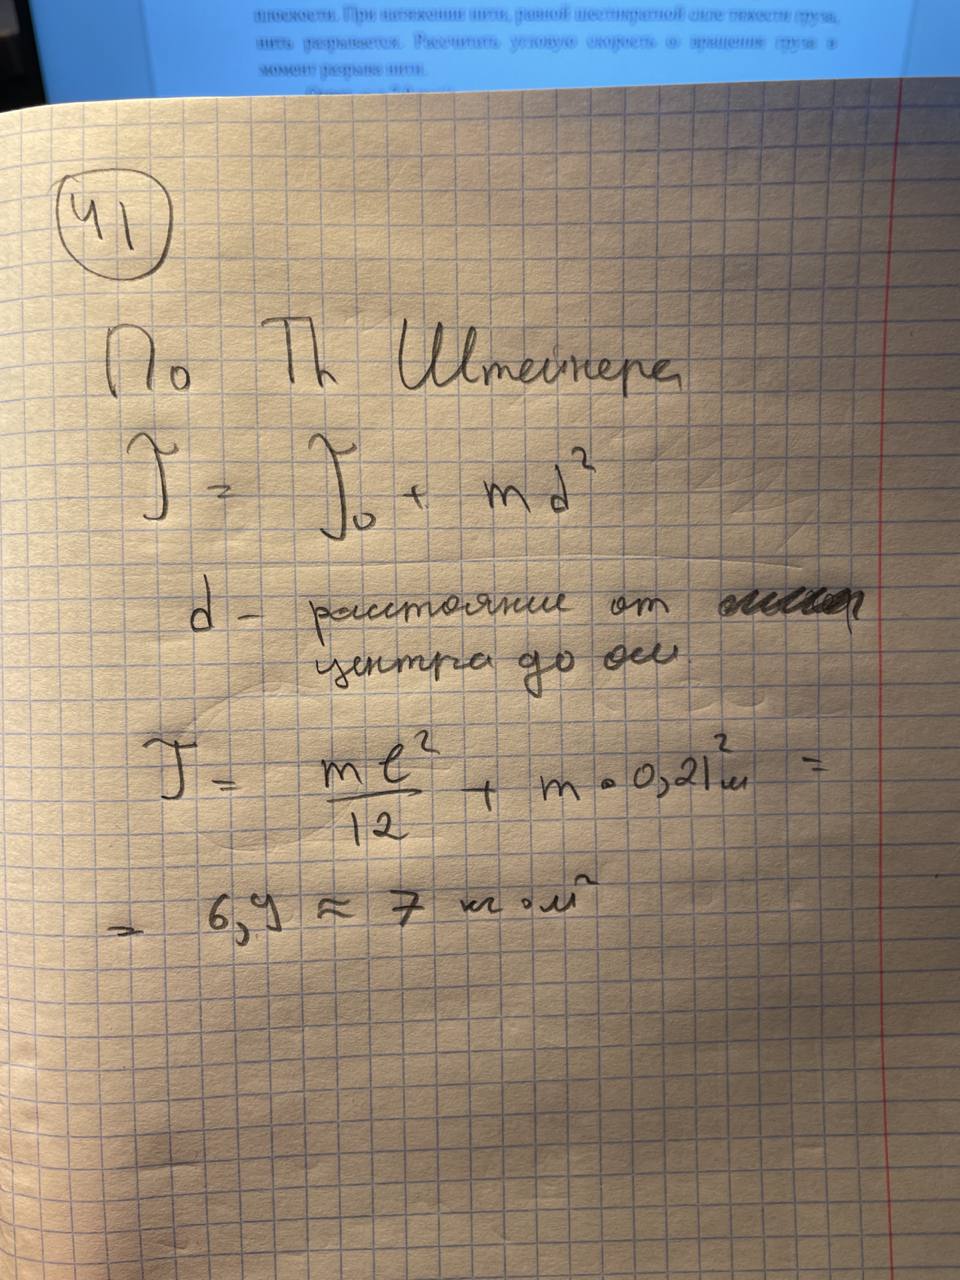 плоскости. При натяжении нити, равной шестикратной силе тяжести груза,
нить разрывается. Рассчитать угловую скорость ω вращения груза в
момент разрыва нити.
41
По Th Штейнера
J = J₀ + md²
d – расстояние от
центра до оси
J = ml²/12 + m · 0,21²м =
= 6,9 ≈ 7 кг·м²